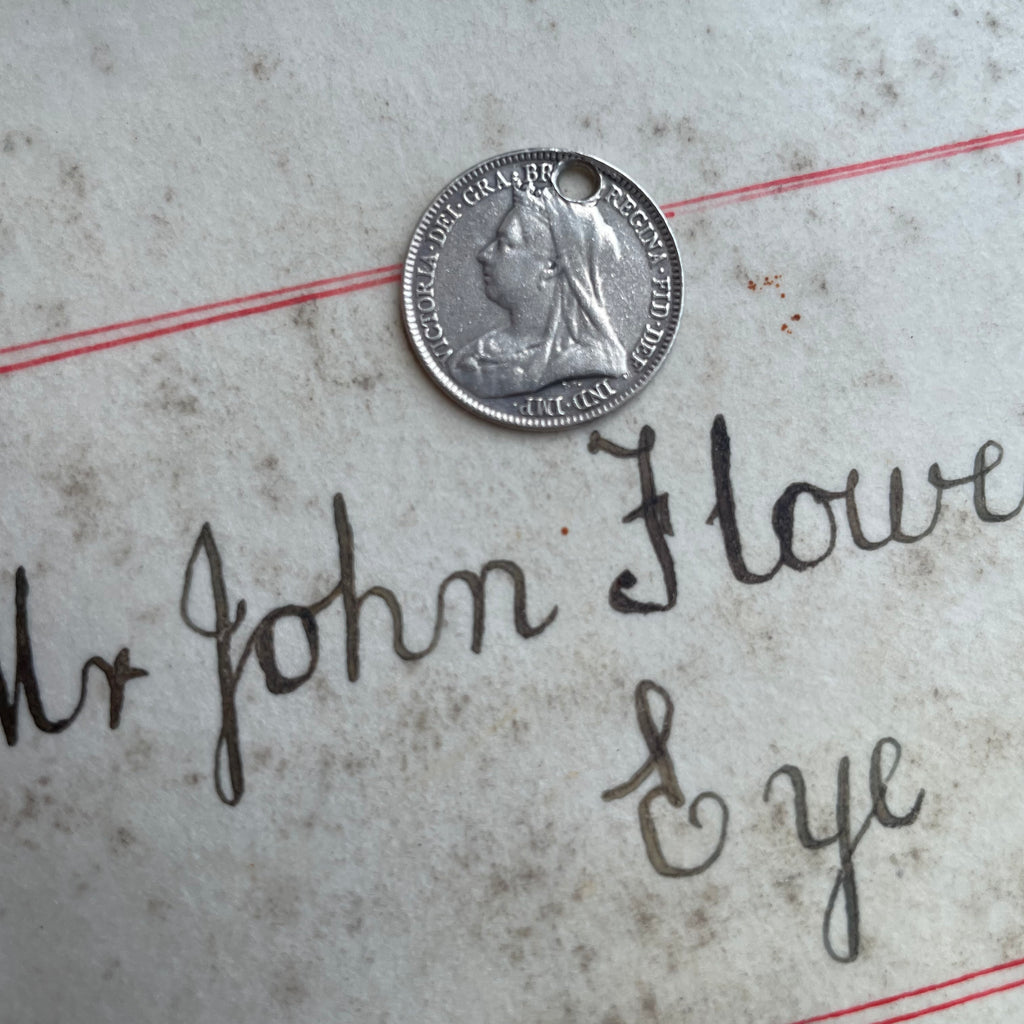 VICTORIA·DEI·GRA·BR REGINA·FID·DEF· IND·IMP·
Mr John Flowe
Eye